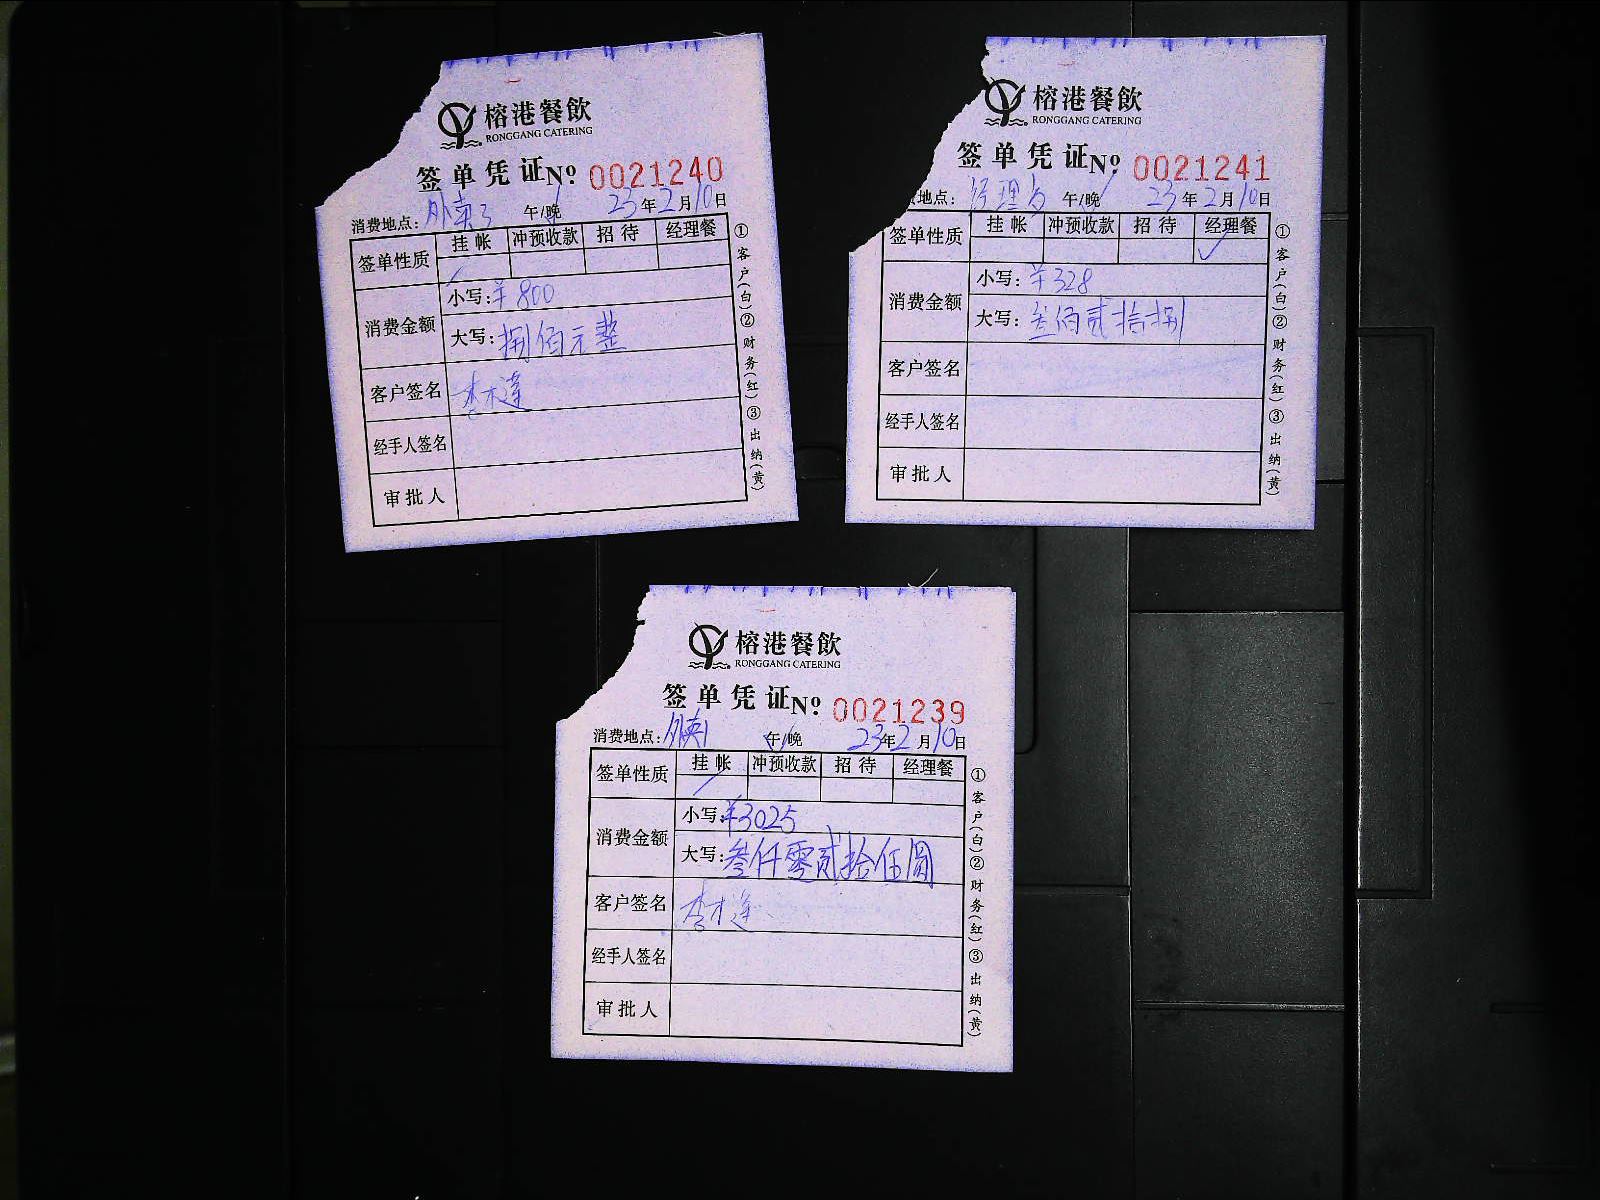 榕港餐飲
RONGGANG CATERING
签单凭证 Nº 0021240
消费地点: 外卖3 午/晚 23年2月10日
签单性质 挂帐 冲预收款 招待 经理餐
消费金额 小写: ¥800
大写: 捌佰元整
客户签名 李木莲
经手人签名
审批人
①客户(白)②财务(红)③出纳(黄)
榕港餐飲
RONGGANG CATERING
签单凭证 Nº 0021241
地点: 经理台 午/晚 23年2月10日
签单性质 挂帐 冲预收款 招待 经理餐 ✓
消费金额 小写: ¥328
大写: 叁佰贰拾捌
客户签名
经手人签名
审批人
①客户(白)②财务(红)③出纳(黄)
榕港餐飲
RONGGANG CATERING
签单凭证 Nº 0021239
消费地点: 外卖1 午/晚 23年2月10日
签单性质 挂帐 冲预收款 招待 经理餐
消费金额 小写: ¥3025
大写: 叁仟零贰拾伍圆
客户签名 李木莲
经手人签名
审批人
①客户(白)②财务(红)③出纳(黄)